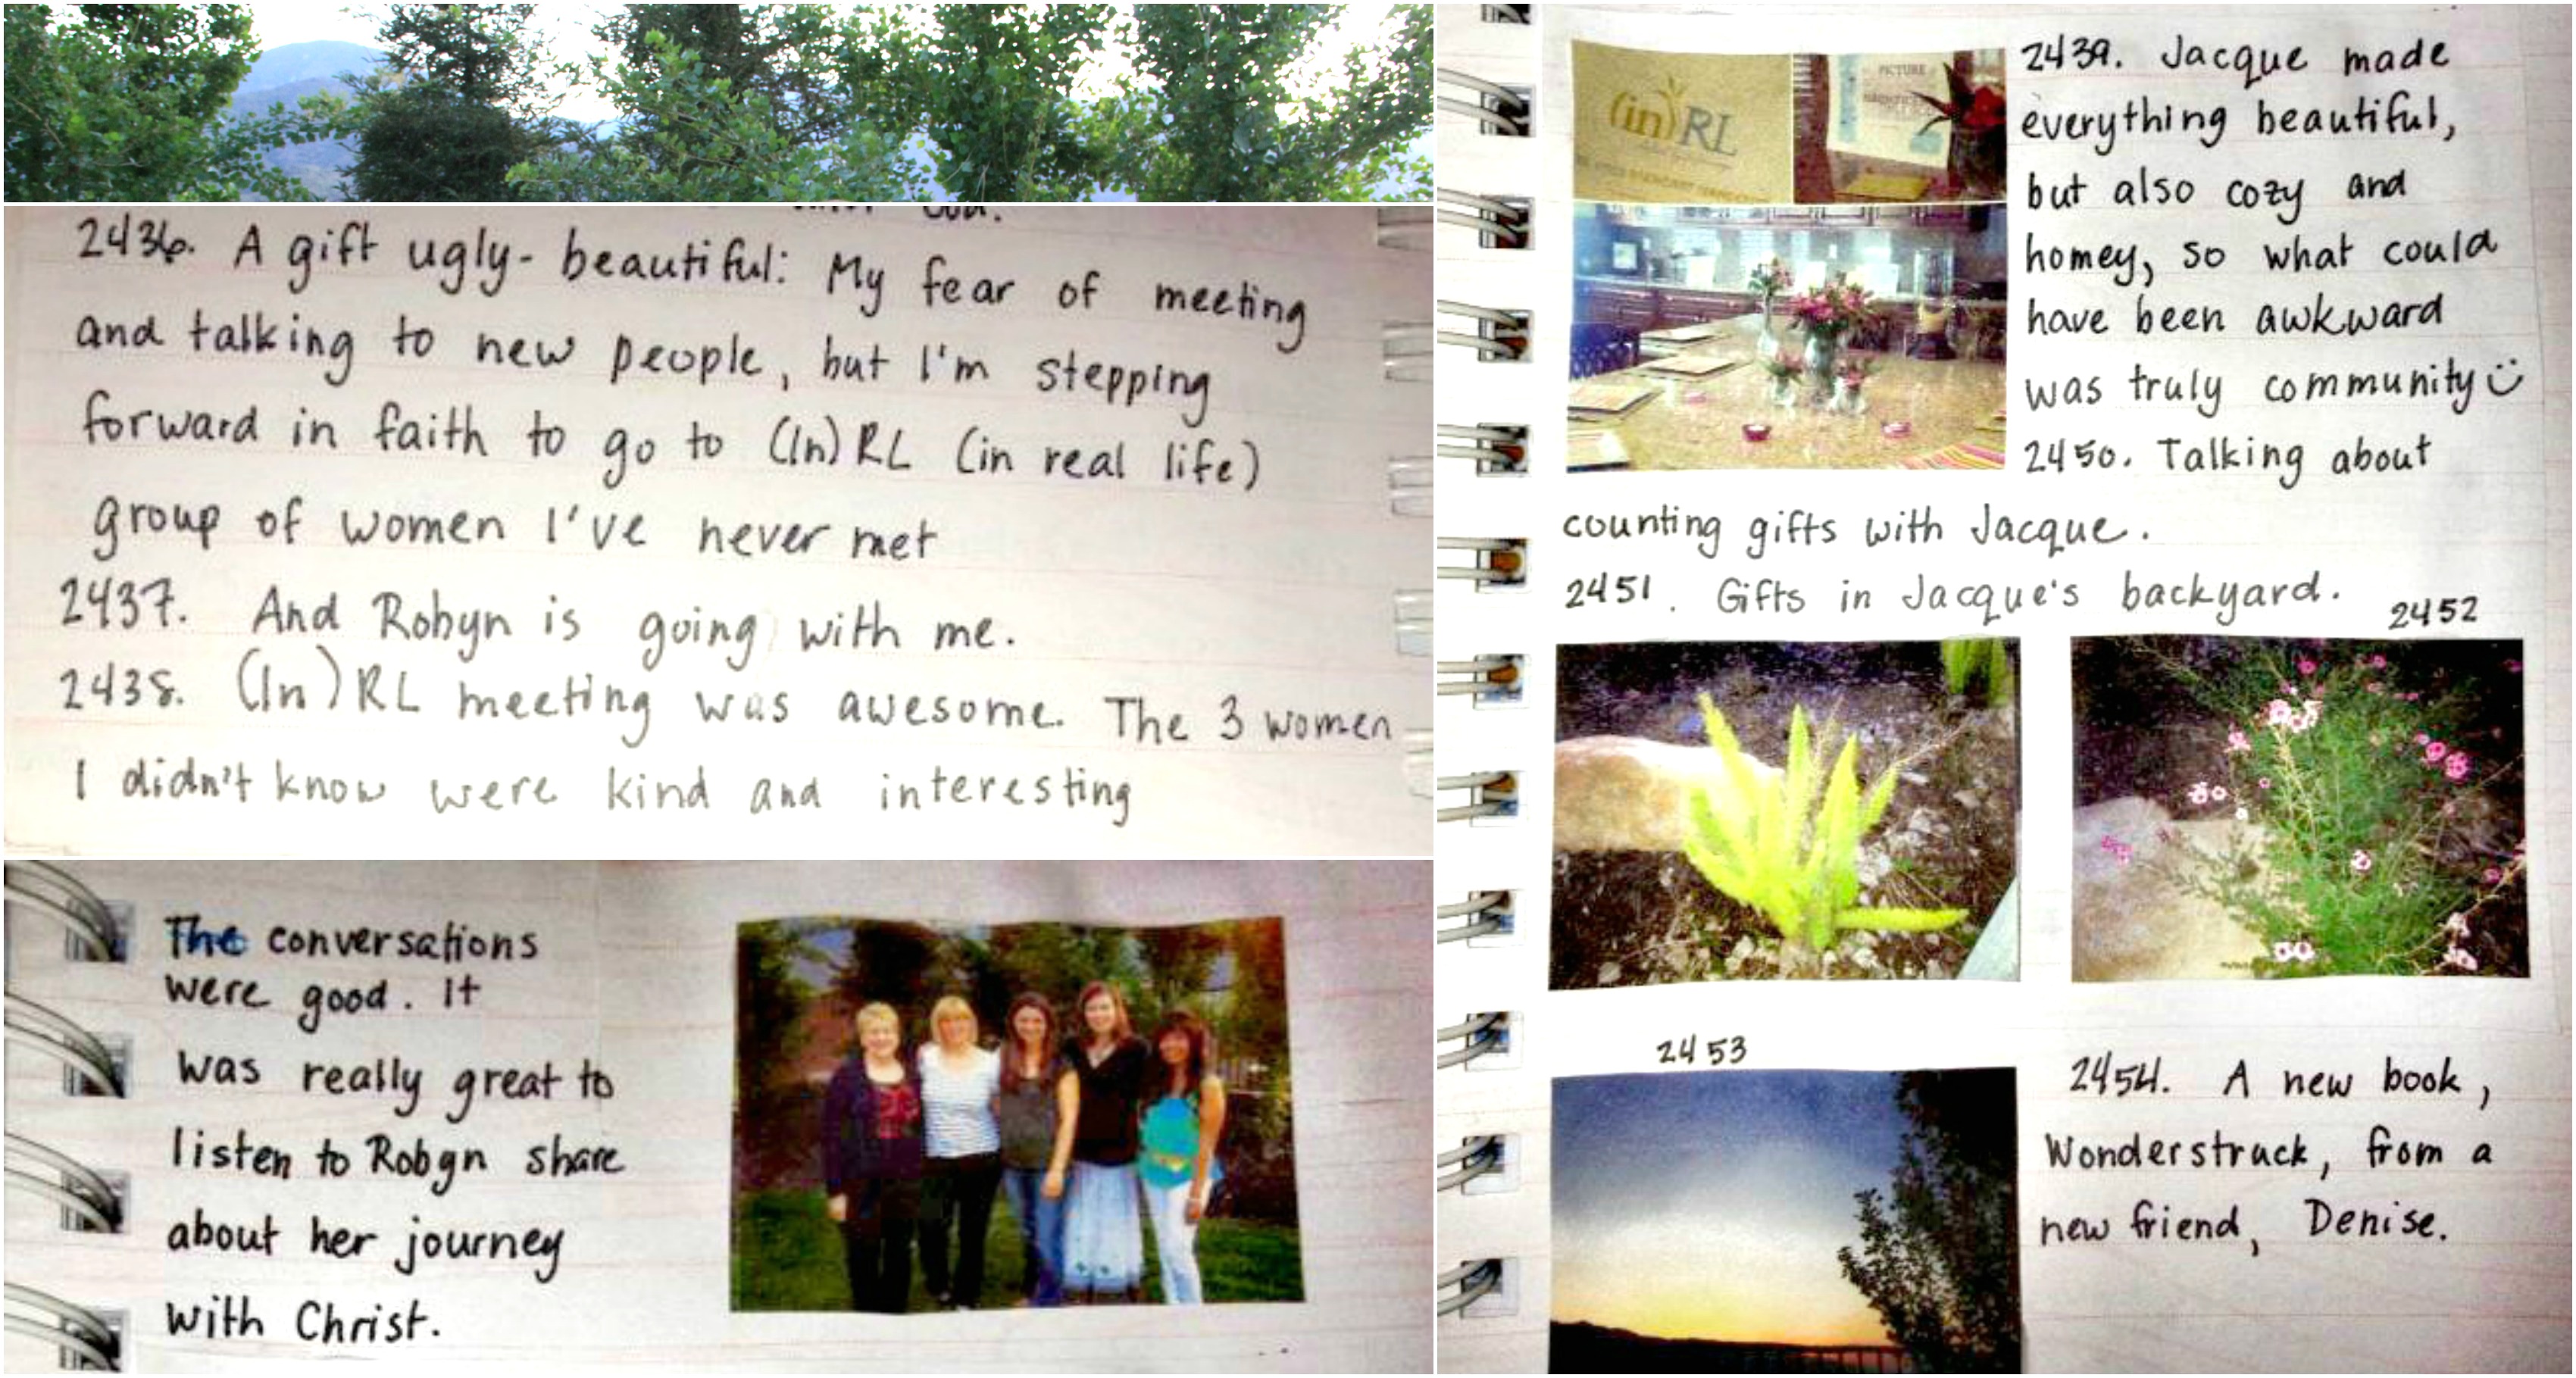 2436. A gift ugly-beautiful: My fear of meeting
and talking to new people, but I'm stepping
forward in faith to go to (In)RL (in real life)
group of women I've never met
2437. And Robyn is going with me.
2438. (In)RL meeting was awesome. The 3 women
I didn't know were kind and interesting
The conversations
were good. It
was really great to
listen to Robyn share
about her journey
with Christ.
(in)RL
PICTURE
2439. Jacque made
everything beautiful,
but also cozy and
homey, so what could
have been awkward
was truly community
2450. Talking about
counting gifts with Jacque.
2451. Gifts in Jacque's backyard.
2452
2453
2454. A new book,
Wonderstruck, from a
new friend, Denise.